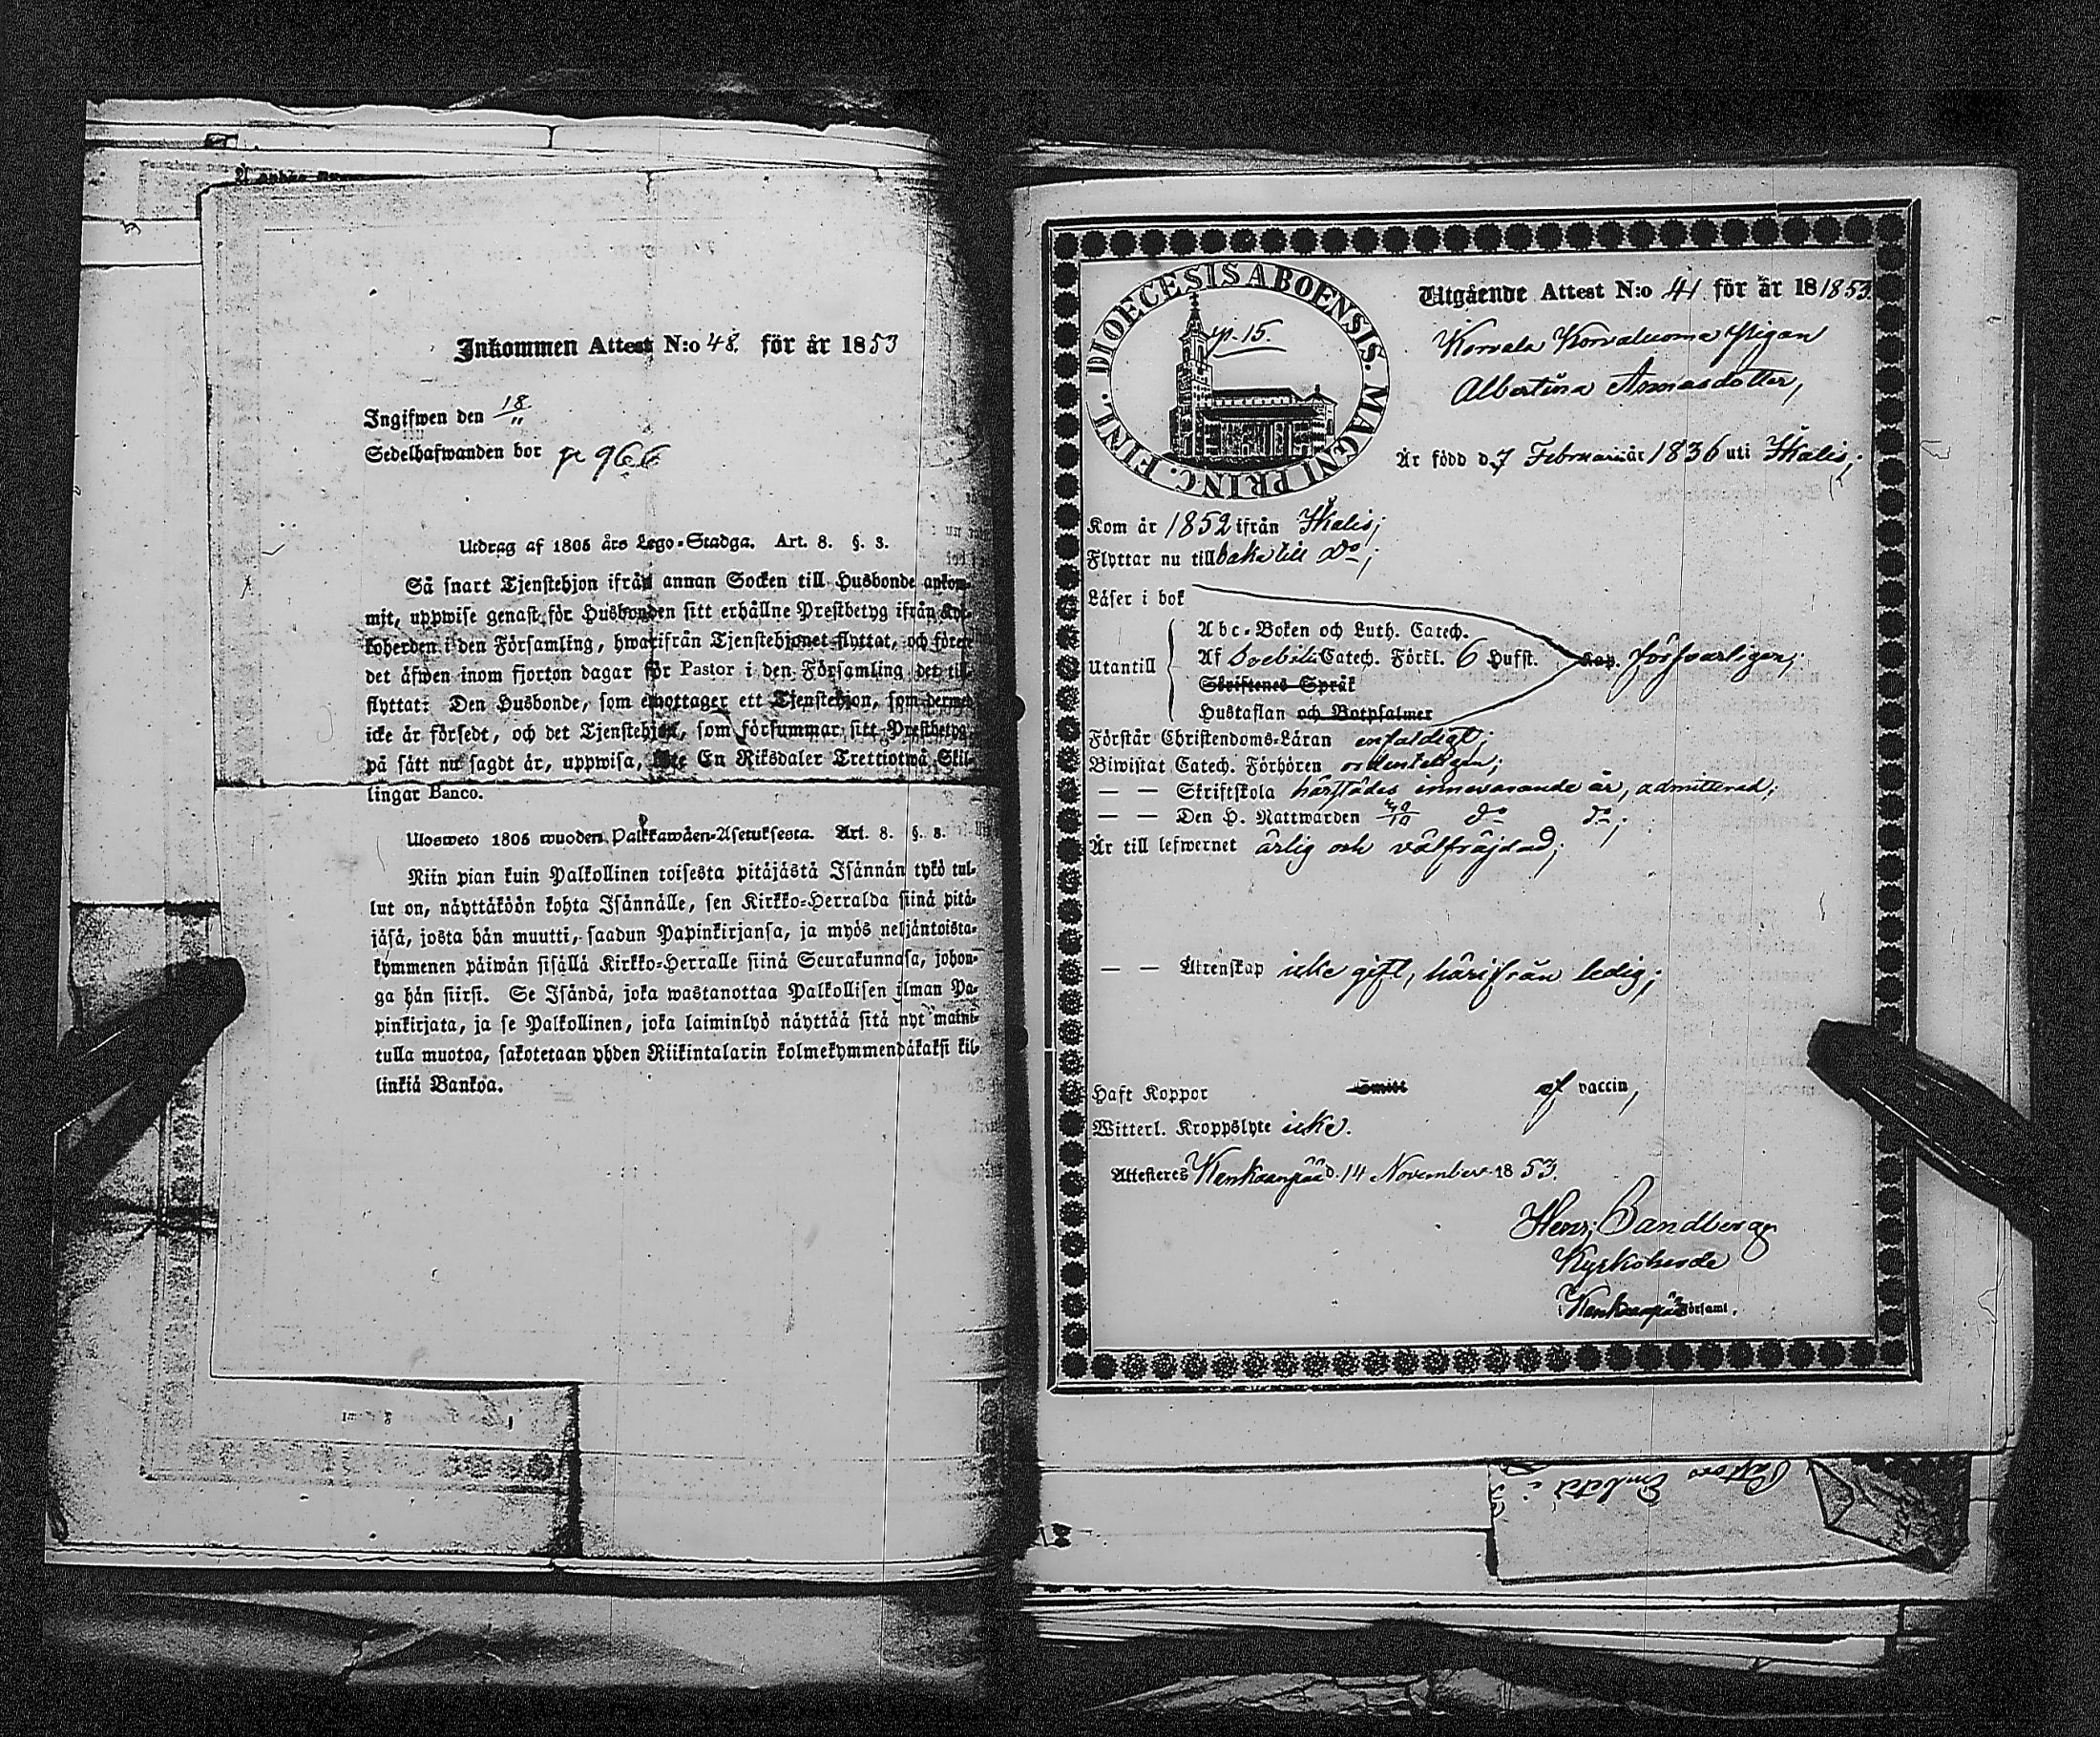 Inkommen Attest N:o 48. för år 1853
Ingifwen den 18/11
Sedelhafwanden bor p 966
Utdrag af 1805 års Lego-Stadga. Art. 8. §. 3.
Så snart Tjenstehjon ifrån annan Socken till Husbonde ankom-
mit, uppwise genast för Husbonden sitt erhållne Prestbetyg ifrån Kyr-
koherden i den Församling, hwarifrån Tjenstehjonet flyttat, och före
det äfwen inom fjorton dagar för Pastor i den Församling det till
flyttat: Den Husbonde, som emottager ett Tjenstehjon, som dermed
icke är försedt, och det Tjenstehjon, som försummar sitt Prestbetyg,
på sätt nu sagdt är, uppwisa, böte En Riksdaler Trettiotwå Skil-
lingar Banco.
Ulosweto 1805 wuoden Palkkawäen-Asetuksesta. Art. 8. §. 3.
Niin pian kuin Palkollinen toisesta pitäjästä Isännän tykö tul-
lut on, näyttäköön kohta Isännälle, sen Kirkko-Herralda siinä pitä-
jäsä, josta hän muutti, saadun Papinkirjansa, ja myös neljäntoista-
kymmenen päiwän sisällä Kirkko-Herralle siinä Seurakunnasa, johon-
ga hän siirsi. Se Isändä, joka wastanottaa Palkollisen ilman Pa-
pinkirjata, ja se Palkollinen, joka laiminlyö näyttää sitä nyt maini-
tulla muotoa, sakotetaan yhden Riikintalarin kolmekymmendäkaksi kil-
linkiä Bankoa.
DIOECESIS ABOENSIS. MAGNI PRINC. FINL.
p. 15.
Utgående Attest N:o 41 för år 181853.
Korvala Korvaluoma Pigan
Albertina Annasdotter,
Är född d. 7 Februari år 1836 uti Ikalis;
Kom år 1852 ifrån Ikalis;
Flyttar nu tillbaka till Do;
Läser i bok
Utantill
Abc-Boken och Luth. Catech.
Af Svebilii Catech. Förkl. 6 Hufst. Kap. försvarligen;
Skriftenes Språk
Hustaflan och Botpsalmer
Förstår Christendoms-Läran enfaldigt;
Biwistat Catech. Förhören ordentligen;
— — Skriftskola härstädes innevarande år, admitterad;
— — Den H. Nattwarden do do;
Är till lefwernet ärlig och välfräjdad;
— — Äktenskap icke gift, härifrån ledig;
Haft Koppor Smitt af vaccin,
Witterl. Kroppslyte icke.
Attesteres Kankaanpää d. 14 November 1853.
Henr. Sandberg
Kyrkoherde
i Kankaanpää Församl.
Pastors Embetet i